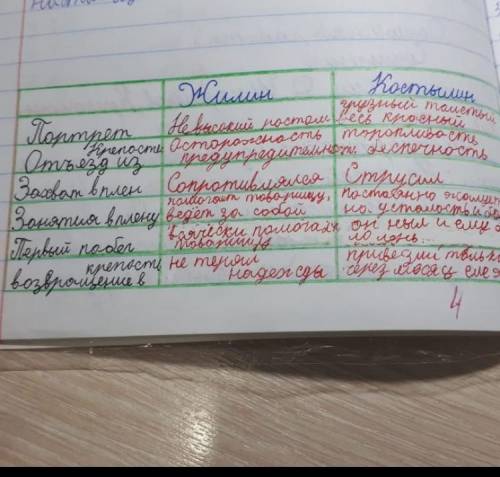 Жилин Костылин
Портрет Невысокий ростом грузный толстый весь красный
Отъезд из крепости Осторожность предупредительность торопливость беспечность
Захват в плен Сопротивлялся Струсил
Занятия в плену помогает товарищу, ведёт за собой постоянно жалуется на усталость и
Первый побег всячески помогал товарищу он ныл и ему было лень...
возвращение в крепость не терял надежды привезли только через месяц еле
4